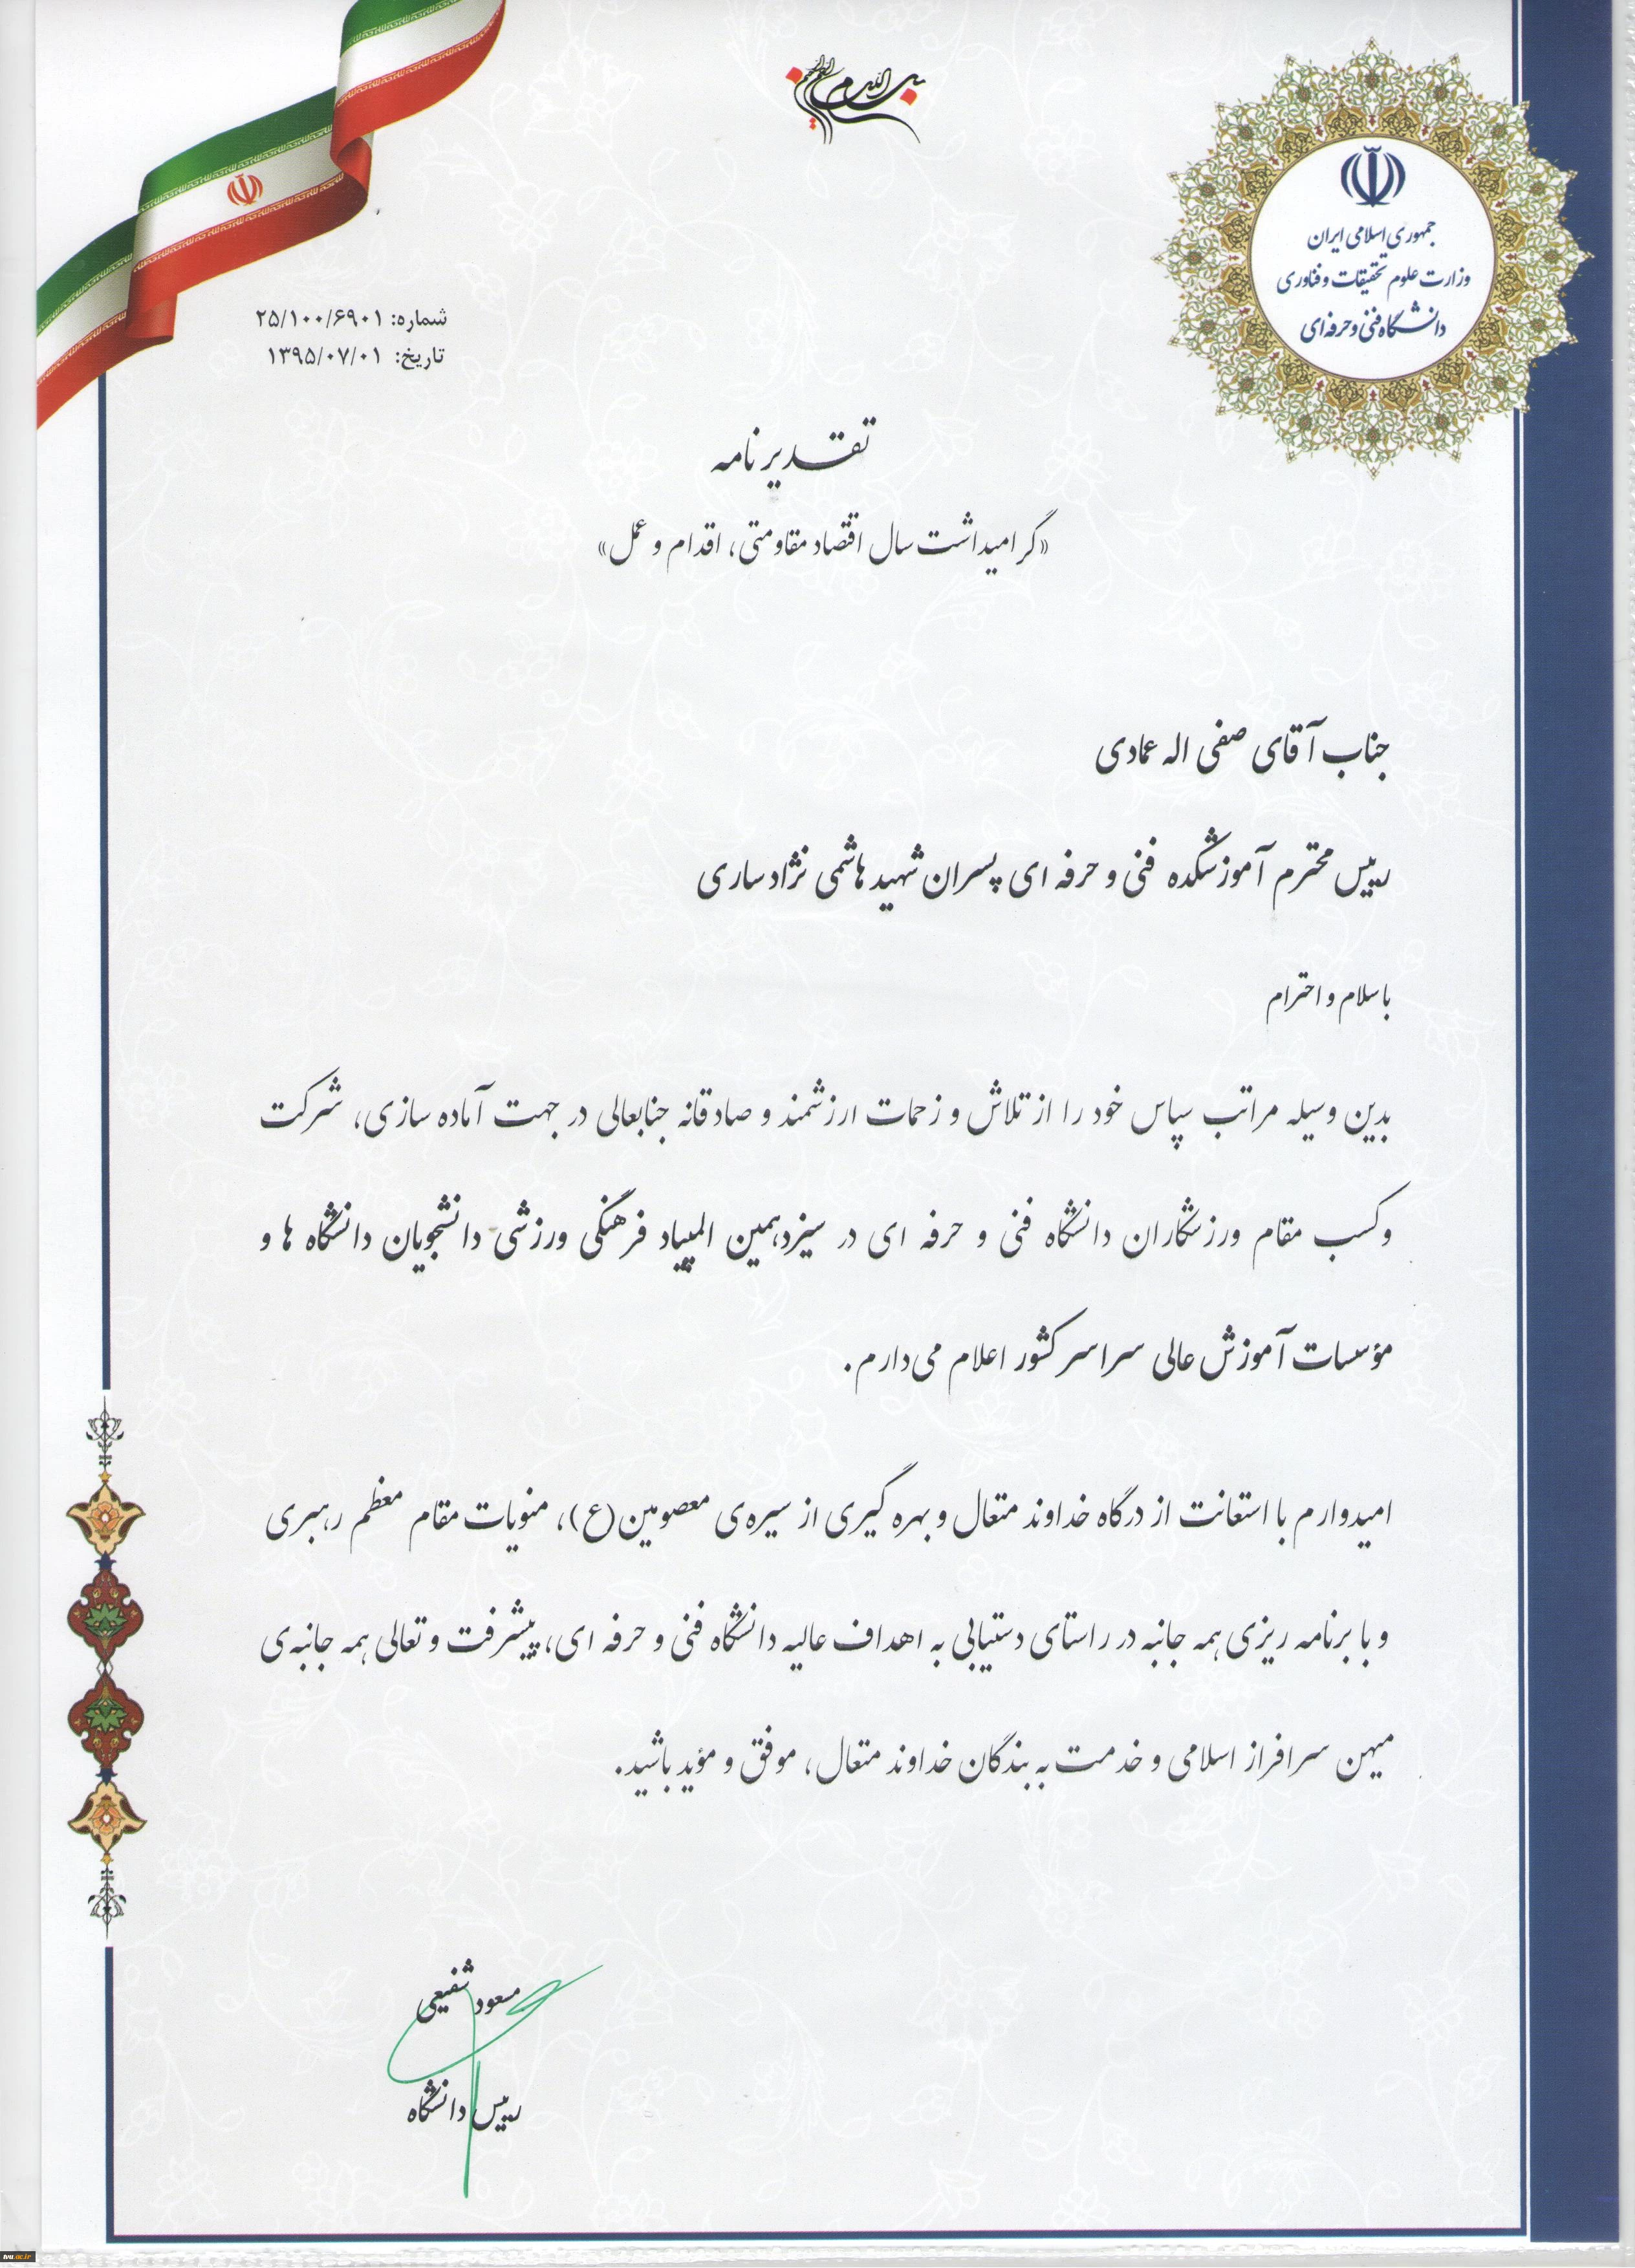 بسم الله الرحمن الرحیم
جمهوری اسلامی ایران
وزارت علوم تحقیقات و فناوری
دانشگاه فنی و حرفه‌ای
شماره: ۲۵/۱۰۰/۶۹۰۱
تاریخ: ۱۳۹۵/۰۷/۰۱
تقدیرنامه
«گرامیداشت سال اقتصاد مقاومتی، اقدام و عمل»
جناب آقای صفی اله عمادی
رییس محترم آموزشکده فنی و حرفه ای پسران شهید هاشمی نژاد ساری
با سلام و احترام
بدین وسیله مراتب سپاس خود را از تلاش و زحمات ارزشمند و صادقانه جنابعالی در جهت آماده سازی، شرکت
و کسب مقام ورزشکاران دانشگاه فنی و حرفه ای در سیزدهمین المپیاد فرهنگی ورزشی دانشجویان دانشگاه ها و
مؤسسات آموزش عالی سراسر کشور اعلام می‌دارم.
امیدوارم با استعانت از درگاه خداوند متعال و بهره گیری از سیره‌ی معصومین(ع)، منویات مقام معظم رهبری
و با برنامه ریزی همه جانبه در راستای دستیابی به اهداف عالیه دانشگاه فنی و حرفه ای، پیشرفت و تعالی همه جانبه‌ی
میهن سرافراز اسلامی و خدمت به بندگان خداوند متعال، موفق و مؤید باشید.
مسعود شفیعی
رییس دانشگاه
tvu.ac.ir